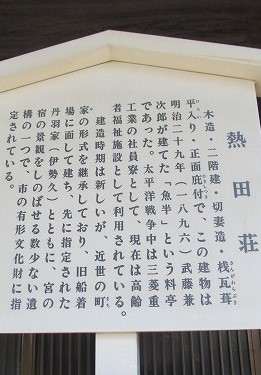 熱田荘
木造・二階建・切妻造・桟瓦葺
さんがわらぶき
平入り・正面庇付で、この建物は
ひらい
明治二十九年(一八九六)武藤兼
次郎が建てた「魚半」という料亭
であった。太平洋戦争中は三菱重
工業の社員寮として、現在は高齢
者福祉施設として利用されている。
建造時期は新しいが、近世の町
家の形式を継承しており、旧船着
場に面して建ち、先に指定された
丹羽家(伊勢久)とともに、宮の
宿の景観をしのばせる数少ない遺
構の一つで、市の有形文化財に指
定されている。